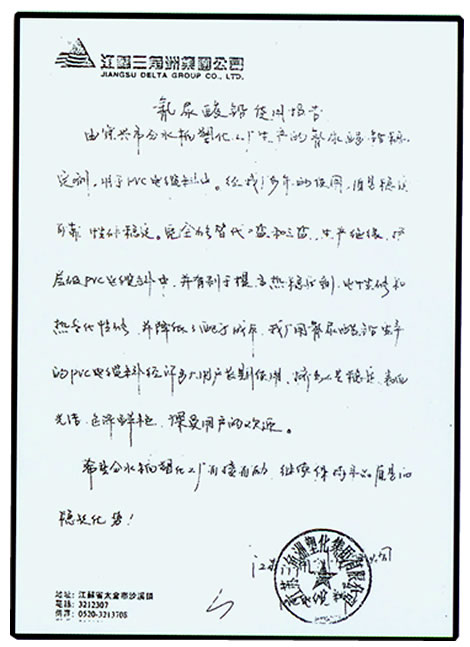 江苏三角洲集团公司
JIANGSU DELTA GROUP CO., LTD.
氰尿酸铅使用报告
由宜兴市分水钡塑化工厂生产的氰尿酸铅稳
定剂,用于PVC电缆料。经我厂多年的使用,质量稳定
可靠,性能稳定。完全能替代二盐和三盐,生产绝缘、护
层级PVC电缆料中,并有利于提高热稳定剂,电性能和
热老化性能,并降低了配方成本。我厂用氰尿酸铅生产
的PVC电缆料经许多厂用户长期使用,挤出工艺稳定,表面
光洁,色泽鲜艳,深受用户的欢迎。
希望分水钡塑化工厂再接再励,继续保持产品质量的
稳定优势!
地址:江苏省太仓市沙溪镇
电话:3212307
传真:0520-3213708